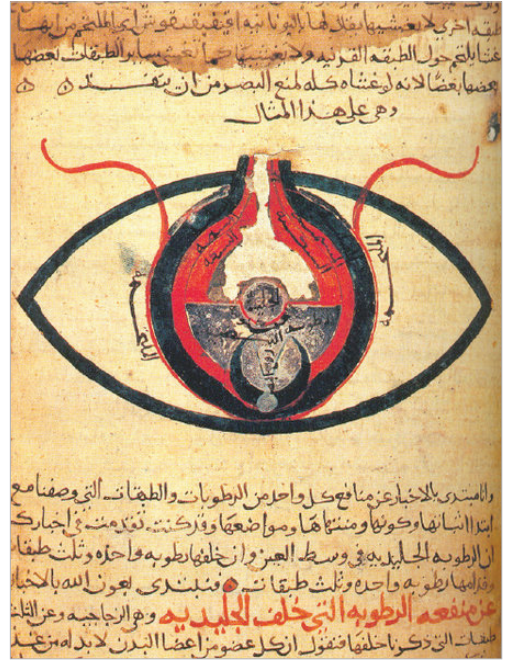 طبقه اخرى لا يغشيها يقال لها باليونانيه اي الملتحم من انها
غشا يلتحم حول الطبقه القرنيه ولا يغشيها كما تغشى ساير الطبقات بعضها
بعضها بعضا لانه لو غشاه كله لمنع البصر من ان ينفذ
وهي على هذا المثال
الجليديه
الرطوبه الزجاجيه
وانا مبتدى بالاخبار عن منافع كل واحد من الرطوبات والطبقات التي وصفنا مع
ابتدا انباتها وكونها ومنتهاها ومواضعها وقد كنت تقدمت في اخبارك
ان الرطوبه الجليديه في وسط العين وان خلفها رطوبه واحده وثلث طبقات
وقدامها رطوبه واحده وثلث طبقات فنبتدى بعون الله بالاخبار
عن منفعه الرطوبه التي خلف الجليديه وهي الزجاجيه وعن الثلث
طبقات التي ذكرنا خلفها فنقول ان كل عضو من اعضا البدن لا بد له من غذا